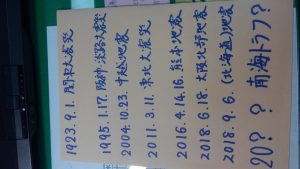 1923.9.1.関東大震災
1995.1.17.阪神・淡路大震災
2004.10.23.中越地震
2011.3.11.東北大震災
2016.4.14.16.熊本地震
2018.6.18.大阪北部地震
2018.9.6.(北海道)地震
20？？南海トラフ？